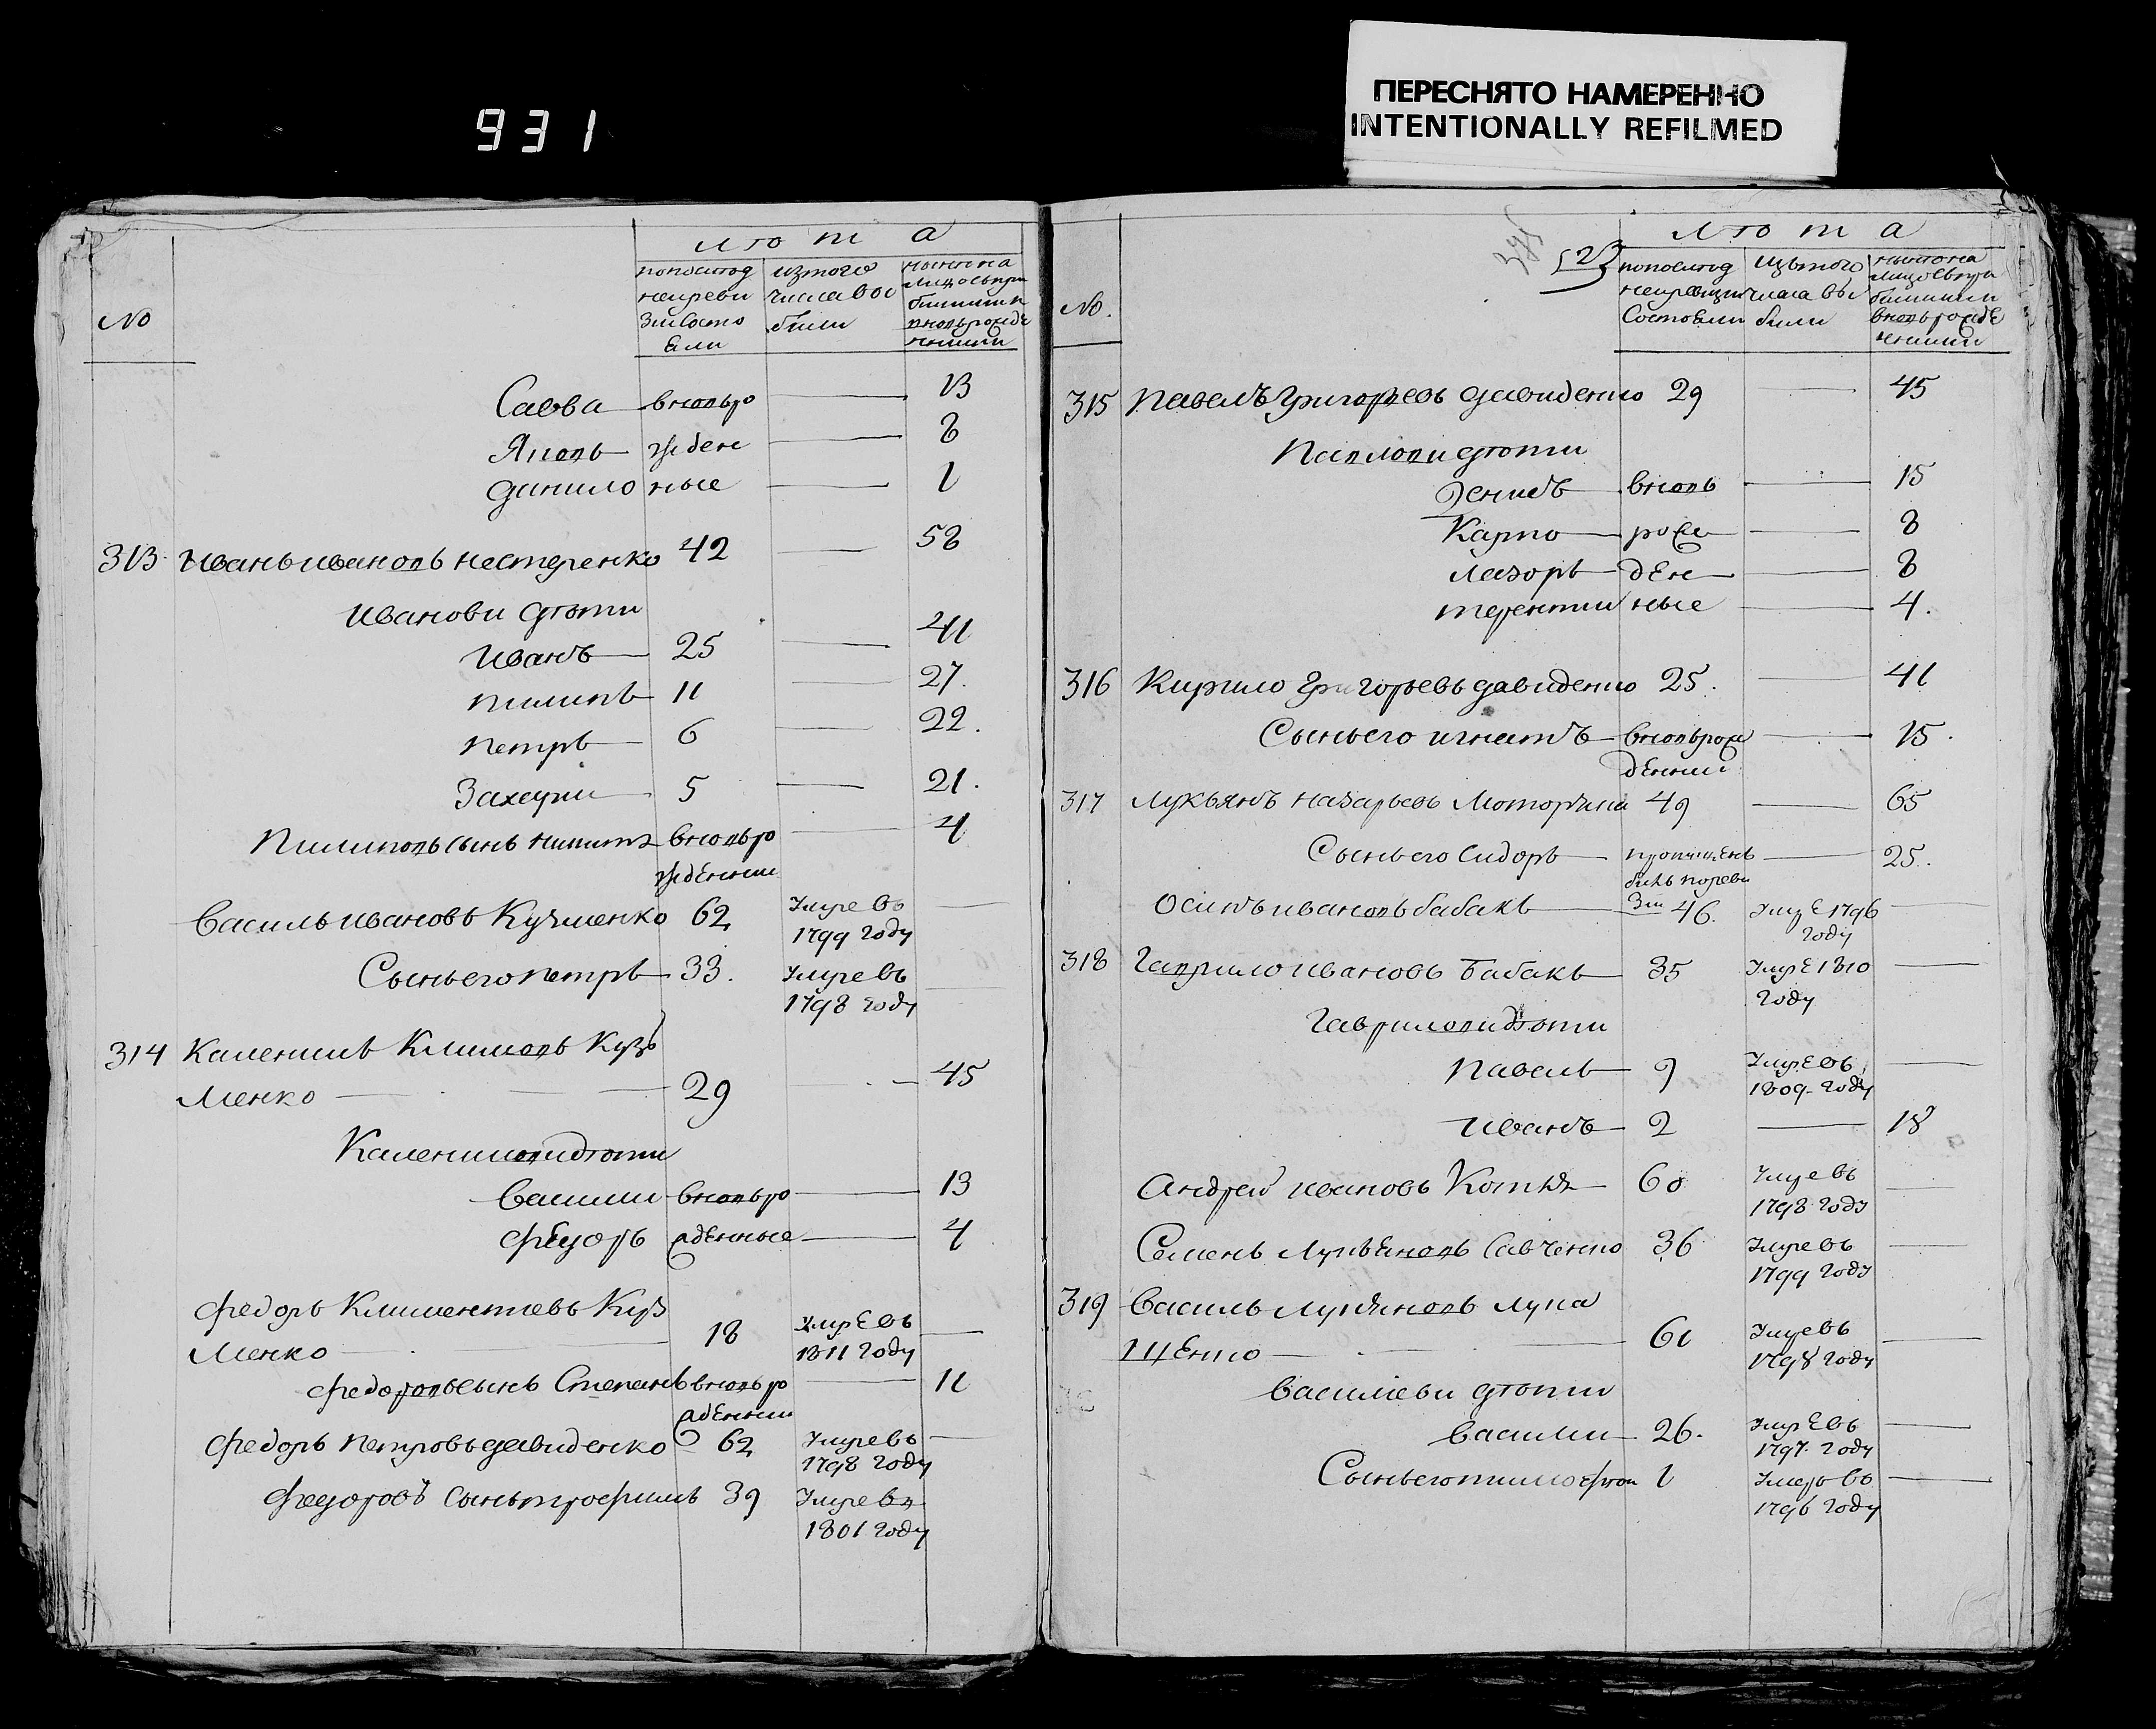 931
ПЕРЕСНЯТО НАМЕРЕННО
INTENTIONALLY REFILMED
лѣта
№
попослѣд
неиреви
зіисосто
яли
изтого
числавы
были
нынѣна
лицосъпри
былыми
вновьрожде
нными
Савва вновьро — 13
Яковъ жден — 8
данило ные — 1
313 Иванъ ивановъ нестеренко 42 — 58
ивановы дѣти
Иванъ 25 — 41
пилипъ 11 — 27.
петръ 6 — 22.
Захарии 5 — 21.
Пилиповъ сынъ никита вновьро — 4
жденныи
Василь ивановъ Кузменко 62 Умре въ —
1799 году
Сынъ его петръ 33. Умре въ —
1798 году
314 Каленикъ Климовъ Куз
Менко — 29 — 45
Каленикови дѣти
Василии вновьро — 13
Федоръ жденные — 4
Федоръ Климентиевъ Куз
Менко — 18 Умре въ —
1811 году
Федоровъ сынъ Степанъ вновьро — 11
жденныи
Федоръ Петровъ давиденко 62 Умре въ —
1798 году
Федоровъ сынъ трофимъ 39 Умре въ
1801 году
523
лѣта
№.
попослѣд
неиревизіи
Состояли
изътого
числа вы
были
нынѣна
лицосъпри
былыми
вновьрожде
нными
315 Павелъ Григорьевъ давиденко 29 — 45
Павлови дѣти
Денисъ вновь — 15
Карпо рож — 8
лазоръ ден — 8
терентии ные — 4.
316 Кирило Григорьевъ давиденко 25. — 41
Сынъ его игнатъ вновьрож — 15.
денныи
317 Лукьянъ назарьевъ Моторчин 49 — 65
Сынъ его Сидоръ пропущенъ — 25.
билъ пореви
Осипъ ивановъ бабакъ зіи 46. Умре 1796 —
году
318 Гаврило ивановъ Бабакъ 35 Умре 1810 —
году
Гаврилови дѣти
Павелъ 9 Умре въ —
1809. году
Иванъ 2 — 18
Андрей ивановъ 60 Умре въ —
1798 году
Семенъ Лукьяновъ Савченко 36 Умре въ —
1799 году
319 Василь Лукьяновъ лука
щенко — 61 Умре въ —
1798 году
Василиеви дѣти
Василии 26. Умре въ —
1797. году
Сынъ его тимофѣи 1 Умеръ въ —
1796 году